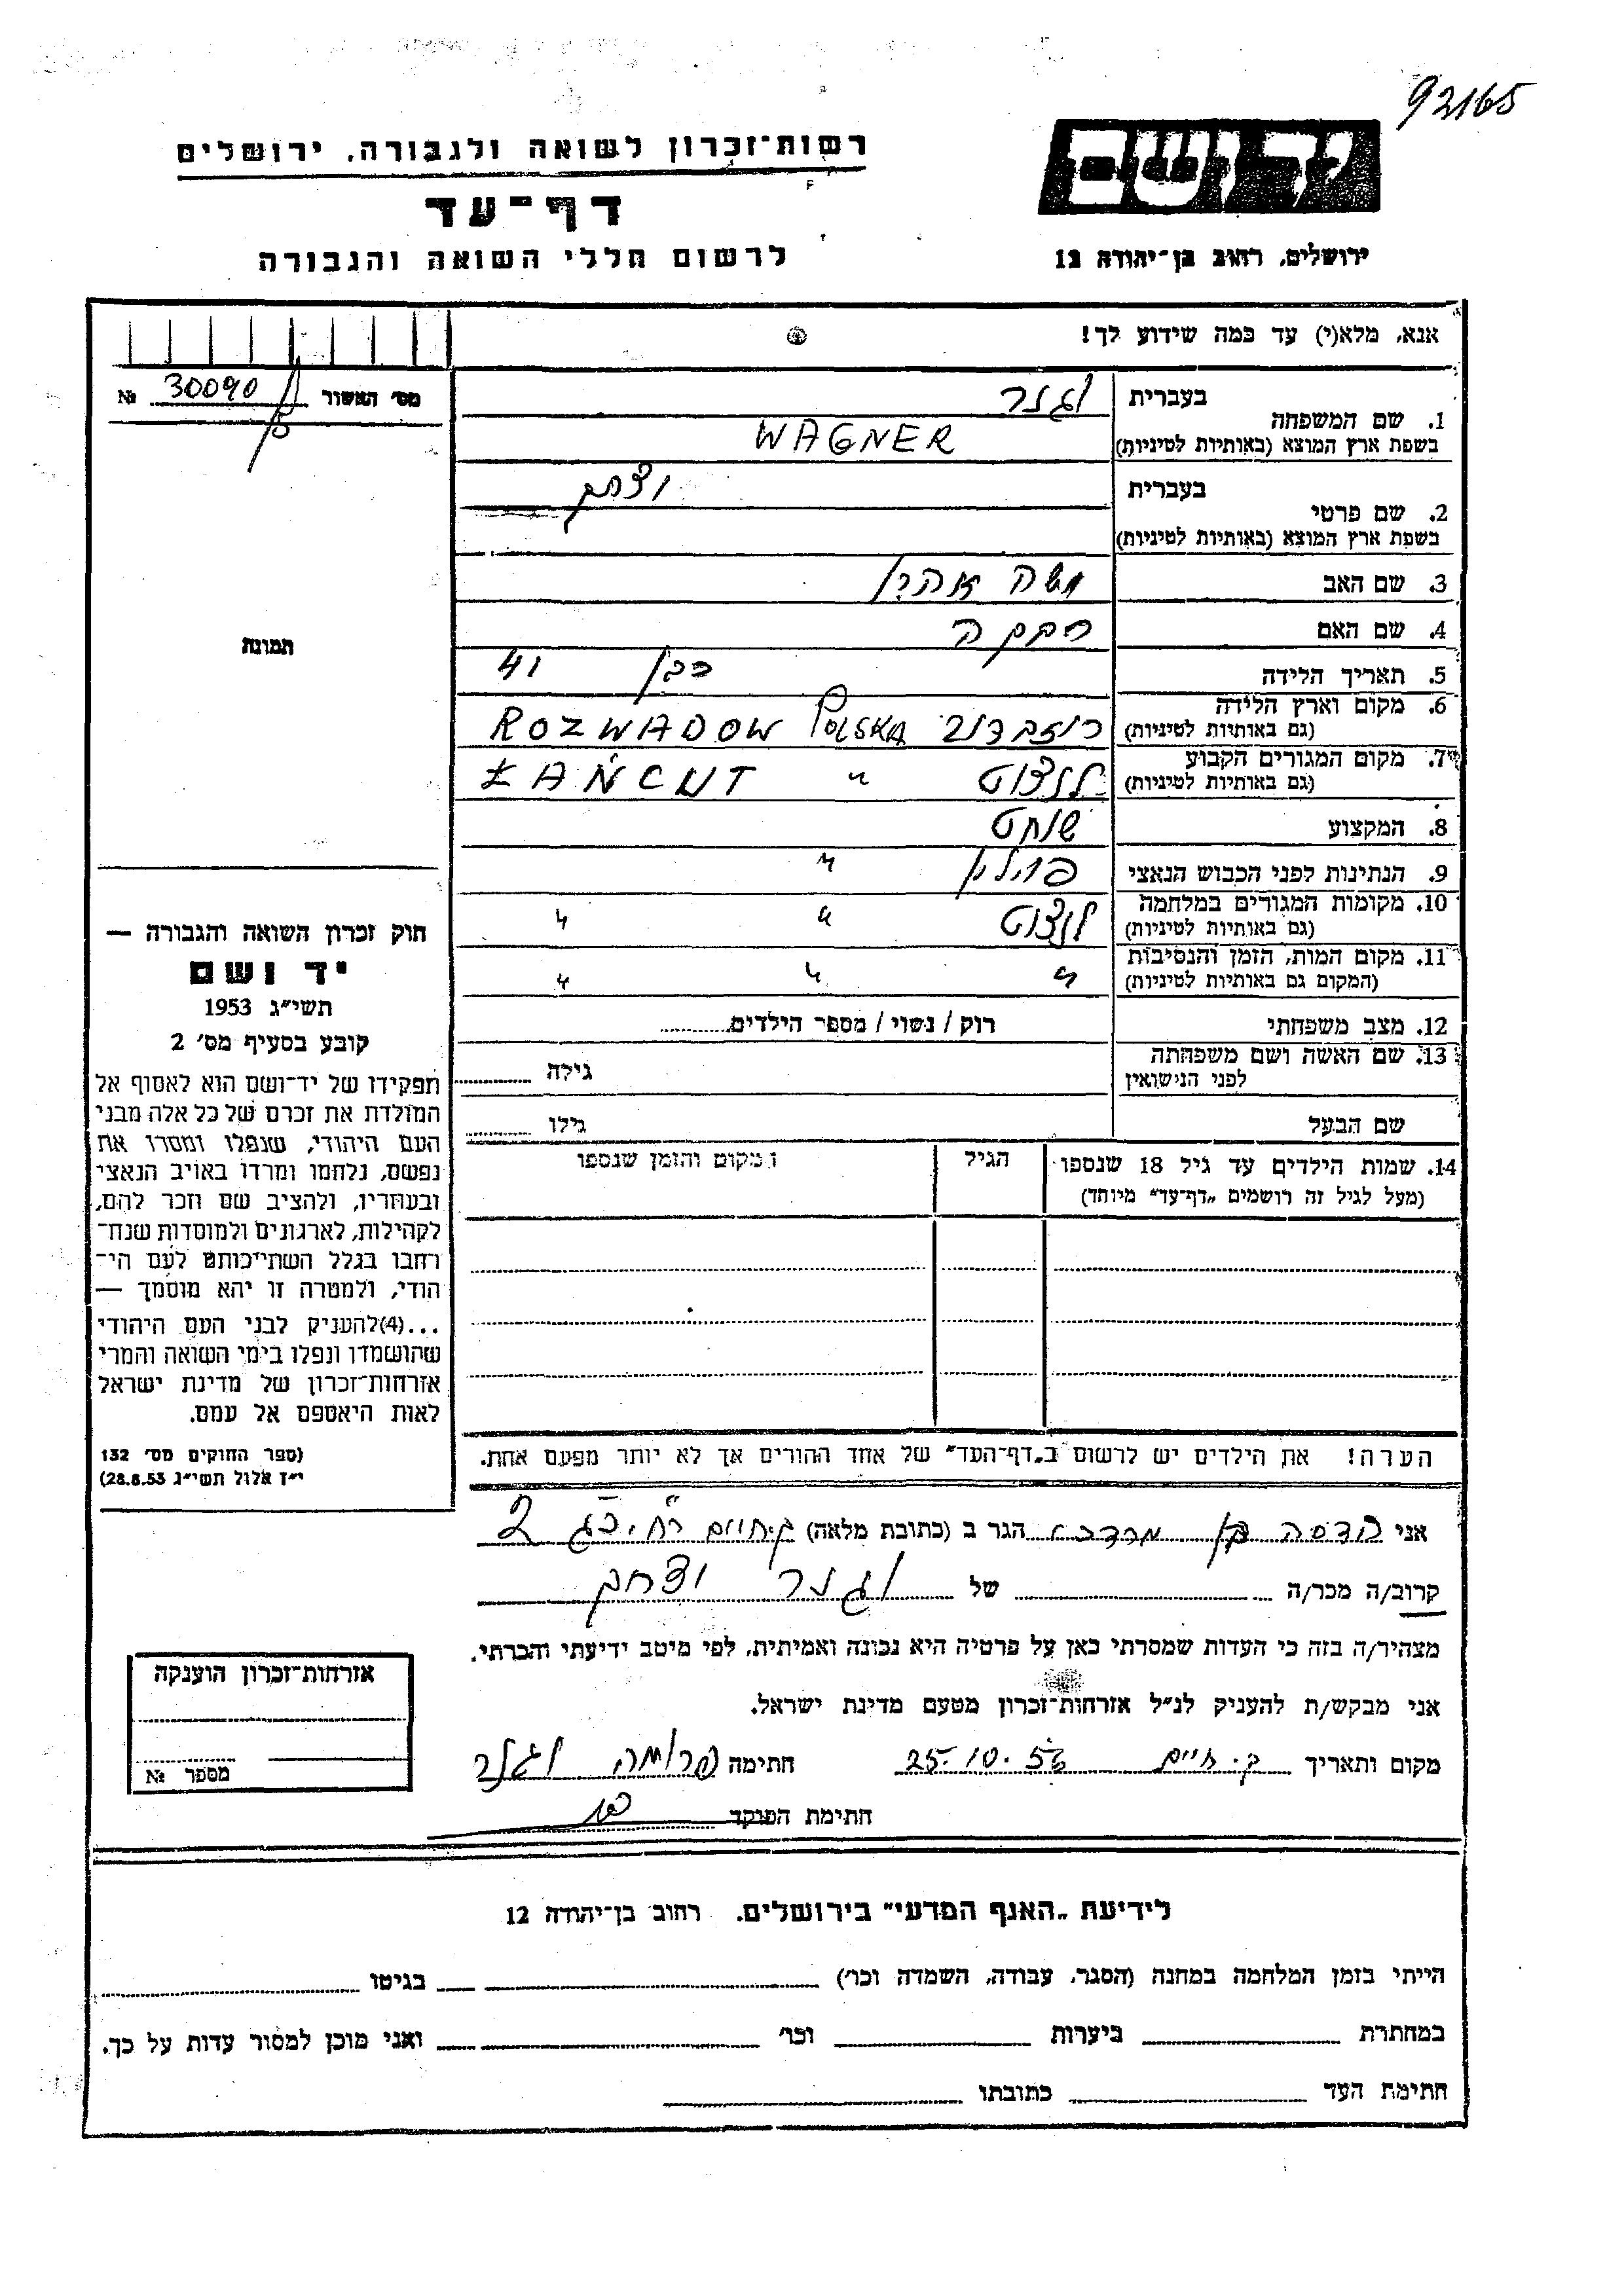 92165
יד ושם
ירושלים, רחוב בן־יהודה 12
רשות־זכרון לשואה ולגבורה, ירושלים
דף־עד
לרשום חללי השואה והגבורה
אנא, מלא(י) עד כמה שידוע לך!
מס׳ האשור 30090 №
תמונה
1. שם המשפחה
בעברית וגנר
בשפת ארץ המוצא (באותיות לטיניות) WAGNER
2. שם פרטי
בעברית יצחק
בשפת ארץ המוצא (באותיות לטיניות)
3. שם האב משה אהרן
4. שם האם רבקה
5. תאריך הלידה כבן 41
6. מקום וארץ הלידה
(גם באותיות לטיניות) רוזבדוב ROZWADOW POLSKA
7. מקום המגורים הקבוע
(גם באותיות לטיניות) לנצוט " ŁAŃCUT
8. המקצוע שוחט
9. הנתינות לפני הכבוש הנאצי פולין "
10. מקומות המגורים במלחמה
(גם באותיות לטיניות) לנצוט " "
11. מקום המות, הזמן והנסיבות
(המקום גם באותיות לטיניות) " " "
12. מצב משפחתי רוק / נשוי / מספר הילדים
13. שם האשה ושם משפחתה
לפני הנישואין גילה
שם הבעל גילו
14. שמות הילדים עד גיל 18 שנספו הגיל ומקום והזמן שנספו
(מעל לגיל זה רושמים „דף־עד" מיוחד)
הערה! את הילדים יש לרשום ב„דף־העד" של אחד ההורים אך לא יותר מפעם אחת.
חוק זכרון השואה והגבורה —
יד ושם
תשי״ג 1953
קובע בסעיף מס׳ 2
תפקידו של יד־ושם הוא לאסוף אל
המולדת את זכרם של כל אלה מבני
העם היהודי, שנפלו ומסרו את
נפשם, נלחמו ומרדו באויב הנאצי
ובעוזריו, ולהציב שם וזכר להם,
לקהילות, לארגונים ולמוסדות שנח־
רבו בגלל השתייכותם לעם הי־
הודי, ולמטרה זו יהא מוסמך —
...(4)להעניק לבני העם היהודי
שהושמדו ונפלו בימי השואה והמרי
אזרחות־זכרון של מדינת ישראל
לאות היאספם אל עמם.
(ספר החוקים מס׳ 132
י״ז אלול תשי״ג 28.8.53)
אני הדסה בן מרדכי הגר ב (כתובת מלאה) ק. חיים רח. 2
קרוב/ה מכר/ה של וגנר יצחק
מצהיר/ה בזה כי העדות שמסרתי כאן על פרטיה היא נכונה ואמיתית, לפי מיטב ידיעתי והכרתי.
אני מבקש/ת להעניק לנ״ל אזרחות־זכרון מטעם מדינת ישראל.
מקום ותאריך ק. חיים 25.10.56 חתימה פרומה וגנר
חתימת הפוקד
אזרחות־זכרון הוענקה
מספר №
לידיעת „האגף המדעי" בירושלים, רחוב בן־יהודה 12
הייתי בזמן המלחמה במחנה (הסגר, עבודה, השמדה וכו׳) בגיטו
במחתרת ביערות וכו׳ ואני מוכן למסור עדות על כך.
חתימת העד כתובתו